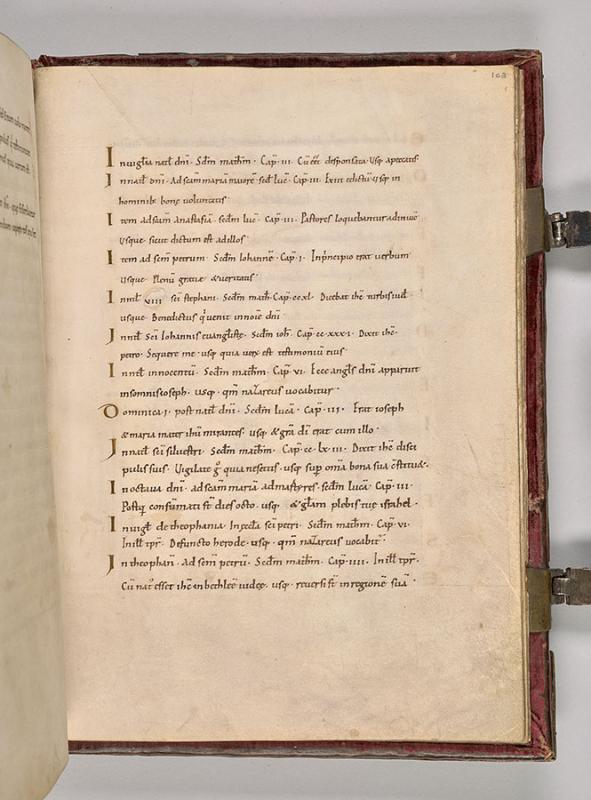 168
In uigilia natl dni. Sedm mathm. Cap. iii. Cu eet desponsata. Usq. apeccatis
In natl dni. Ad scam maria maiore. sed luc. Cap. iii. Exiit edictu. usq. in
hominib; bone uoluntatis.
Item ad scam anastasia. sedm luc. Cap. iii. Pastores loquebantur adinuice
Usque. sicut dictum est ad illos.
Item ad scm petrum. Sedm Iohanne. Cap. i. In principio erat uerbum
usque. Plenu gratiae & ueritatis.
In natl sci stephani. Sedm math. Cap. cc xl. Dicebat ihc turbis iud
usque. Benedictus q uenit in noie dni
In natl Sci Iohannis euangliste. Sedm ioh. Cap. cc. xxx. i. Dixit ihc
petro. Sequere me. usq. quia uer est testimoniu eius
In natl innocentu. Sedm mathm. Cap. vi. Ecce angls dni apparuit
in somnis ioseph. usq. qm nazareus uocabitur.
Dominica. i. post natl dni. Sedm luca. Cap. iii. Erat ioseph
& maria mater ihu mirantes. usq. & gra di erat cum illo.
In natl sci siluestri. Sedm mathm. Cap. cc. lx. iii. Dixit ihc disci
pulis suis. Vigilate g quia nescitis. usq. sup oma bona sua cstitu&.
In octaua dni. ad scam maria ad martyres. sedm luca. Cap. iii.
Postq consumati st dies octo. usq. & glam plebis tue israhel.
In uigl. de theophania. In eccla sci petri. Sedm mathm. Cap. vi.
In ill tpr. Defuncto herode. usq. qm nazareus uocabit.
In theophan. ad scm petru. Sedm mathm. Cap. iiii. In ill tpr.
Cu nat esset ihc in bethlee iudee. usq. reuersi st in regione sua.